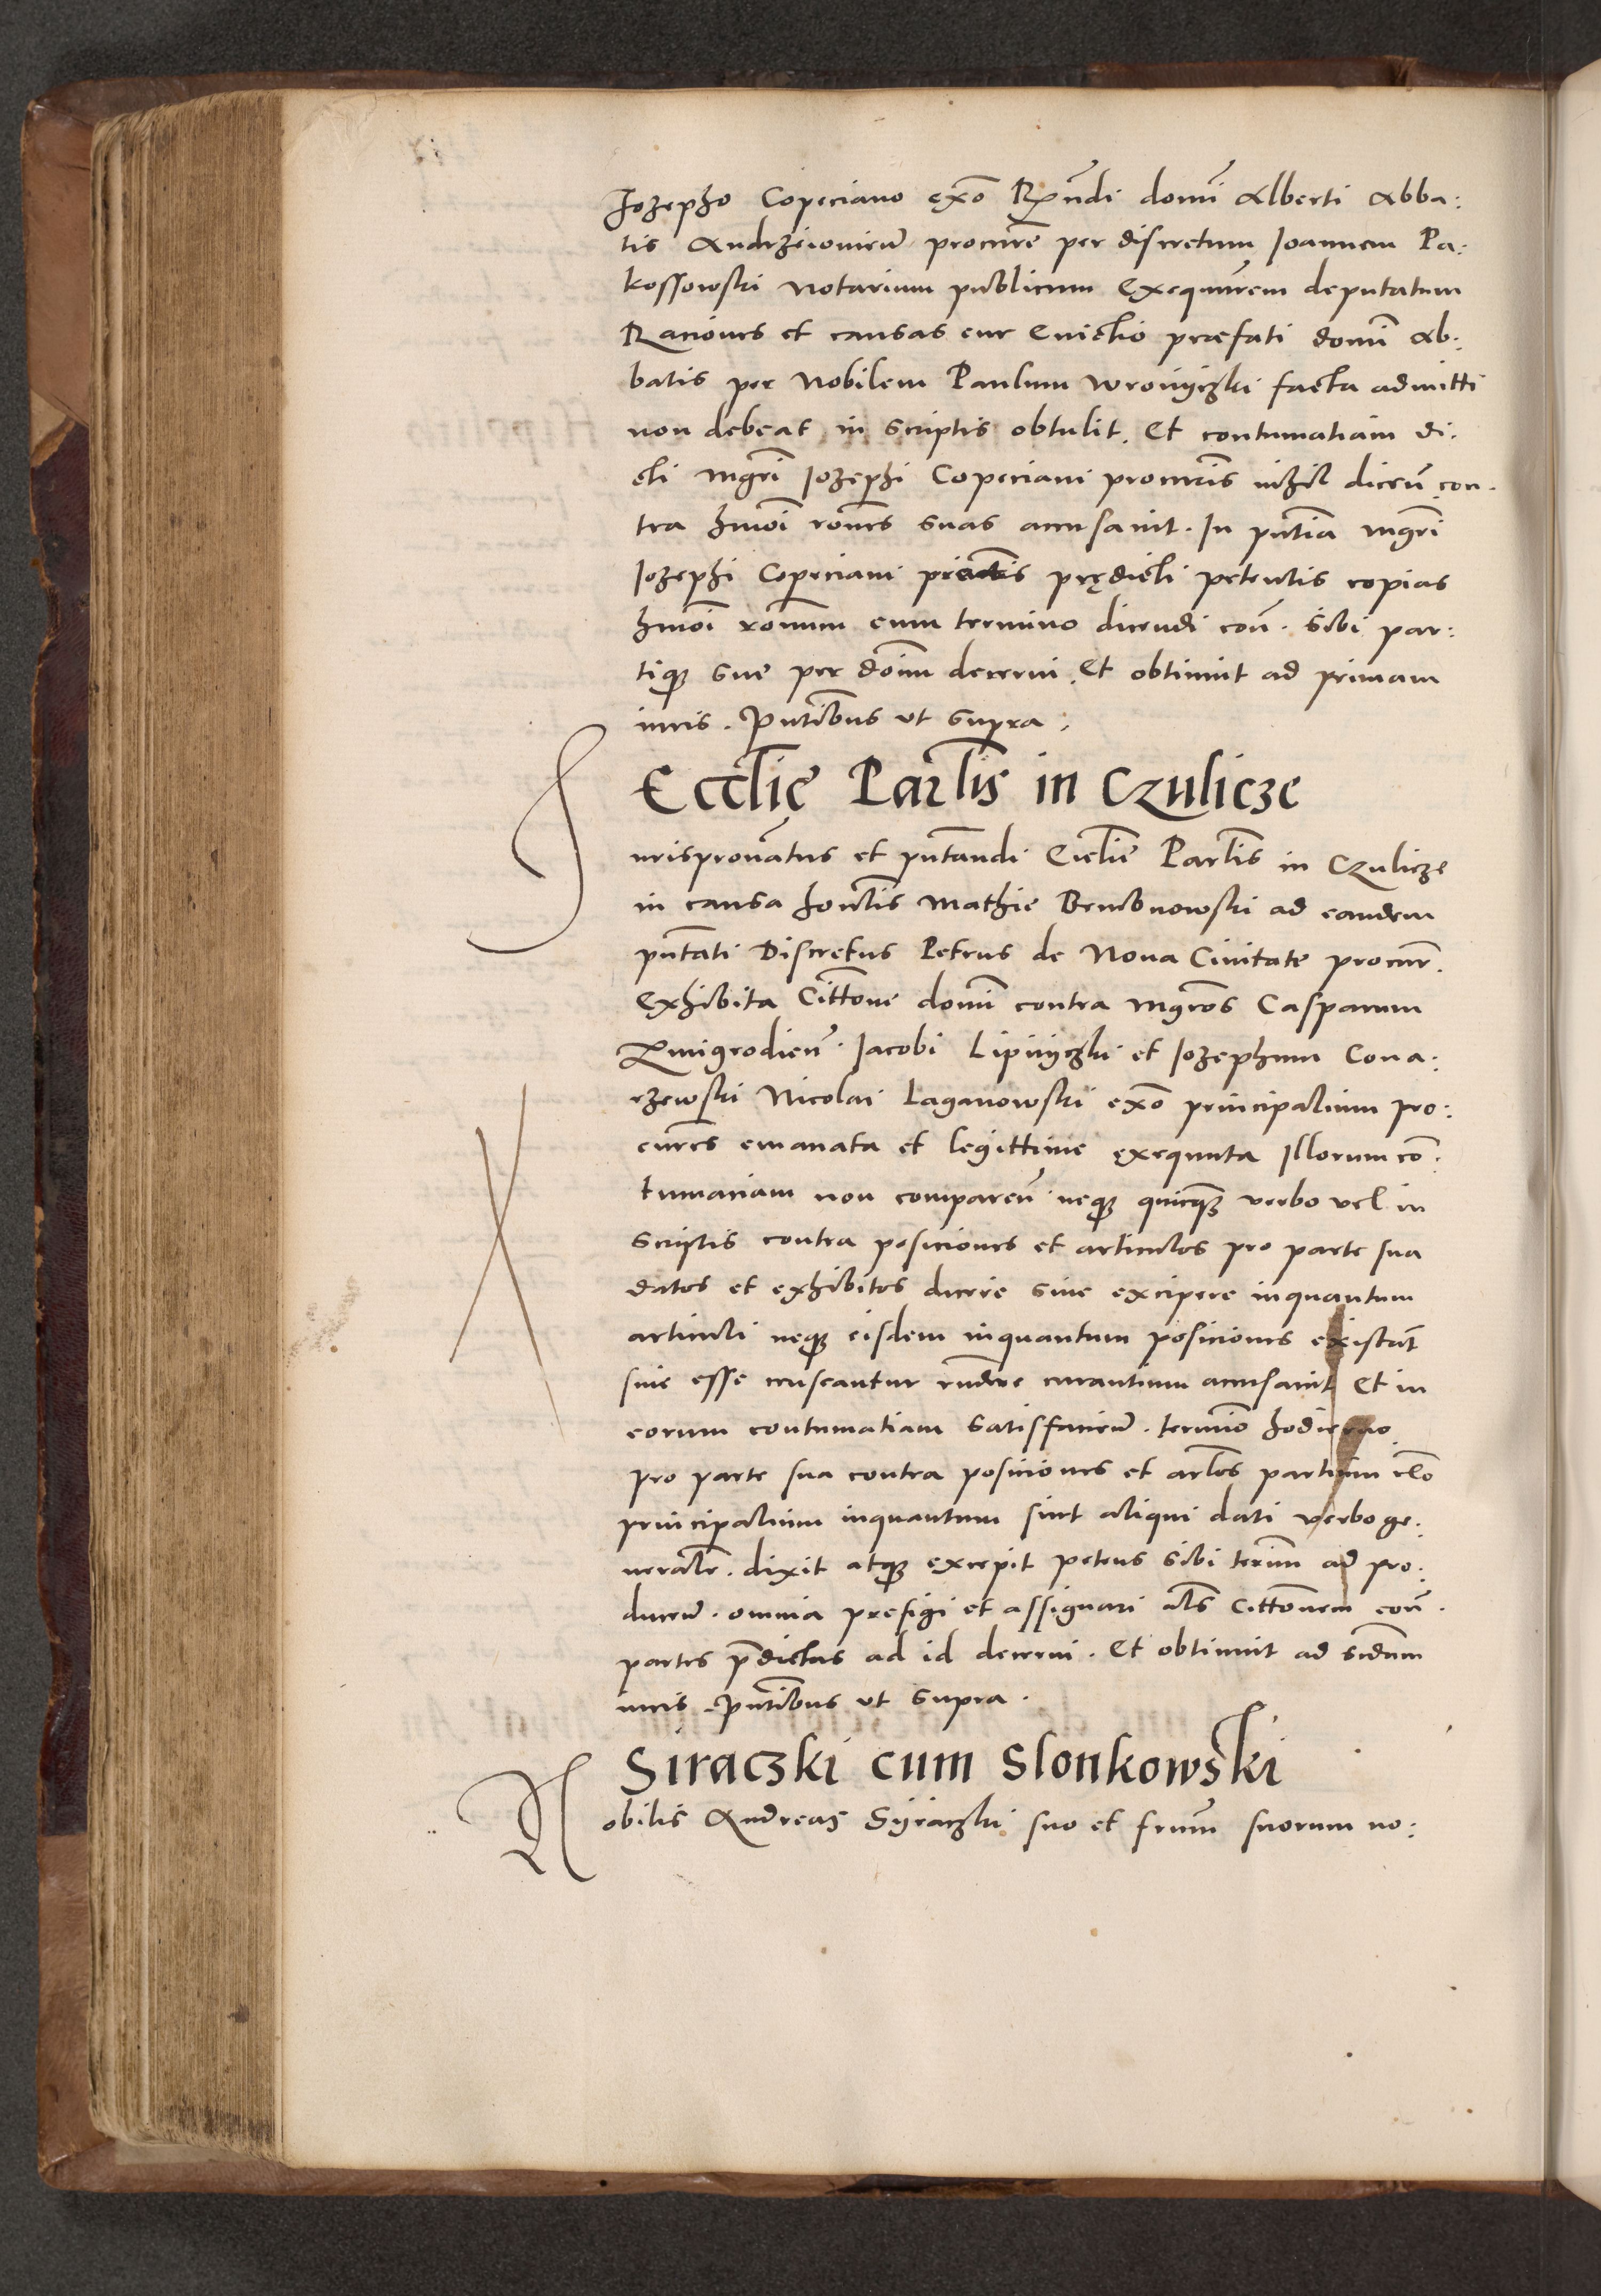 Jozepho Copeciano exo Rndi domi Alberti Abba:
tis Andrzeiouien procure per discretum Joannem Pa:
kossowski Notarium publicum Exequutrem deputatum
Raciones et causas cur Euictio præfati domi Ab:
batis per Nobilem Paulum Wroniyczki facta admitti
non debeat in scriptis obtulit. Et contumatiam di:
cti mgri Jozephi Copeciani procuris nihil dicen con.
tra hmoi rones suas accusauit. In pntia mgri
Jozephi Copeciani prędicti petentis copias
hmoi ronum cum termino dicendi con. sibi par:
tiq3 sue per doim decerni. Et obtinuit ad primam
iuris. Pntibus vt supra.
Ecclię Parlis in Czulicze
Jurispronatus et pntandi Ecclie Parlis in Czulicze
in causa honclis Mathie Bembnowski ad eandem
pntati Discretus Petrus de Noua Ciuitate procur.
Exhibita Cittone domi contra mgros Casparum
Zmigrodien. Jacobi Lipniyczki et Jozephum Cona:
rzewski Nicolai Laganowski exo principalium pro:
cures emanata et legittime exequuta Illorum co:
tumaciam non comparen neq3 quicq3 verbo vel in
scriptis contra posiciones et articulos pro parte sua
datos et exhibitos dicere siue excipere inquantum
articuli neq3 eisdem inquantum posiciones existat
siue esse censeantur rndere curantium accusauit Et in
eorum contumatiam satisfacien. termio hodierno
pro parte sua contra posiciones et artlos partium exo
principalium inquantum sint aliqui dati verbo ge:
neralr. dixit atq3 excepit petens sibi terim ad pro:
ducen. omnia prefigi et assignari als Cittonem con.
partes pdictas ad id decerni. Et obtinuit ad scdam
iuris. Pntibus vt supra.
Siraczki cum Slonkowski
Nobilis Andreas Syraczki suo et frum suorum no: